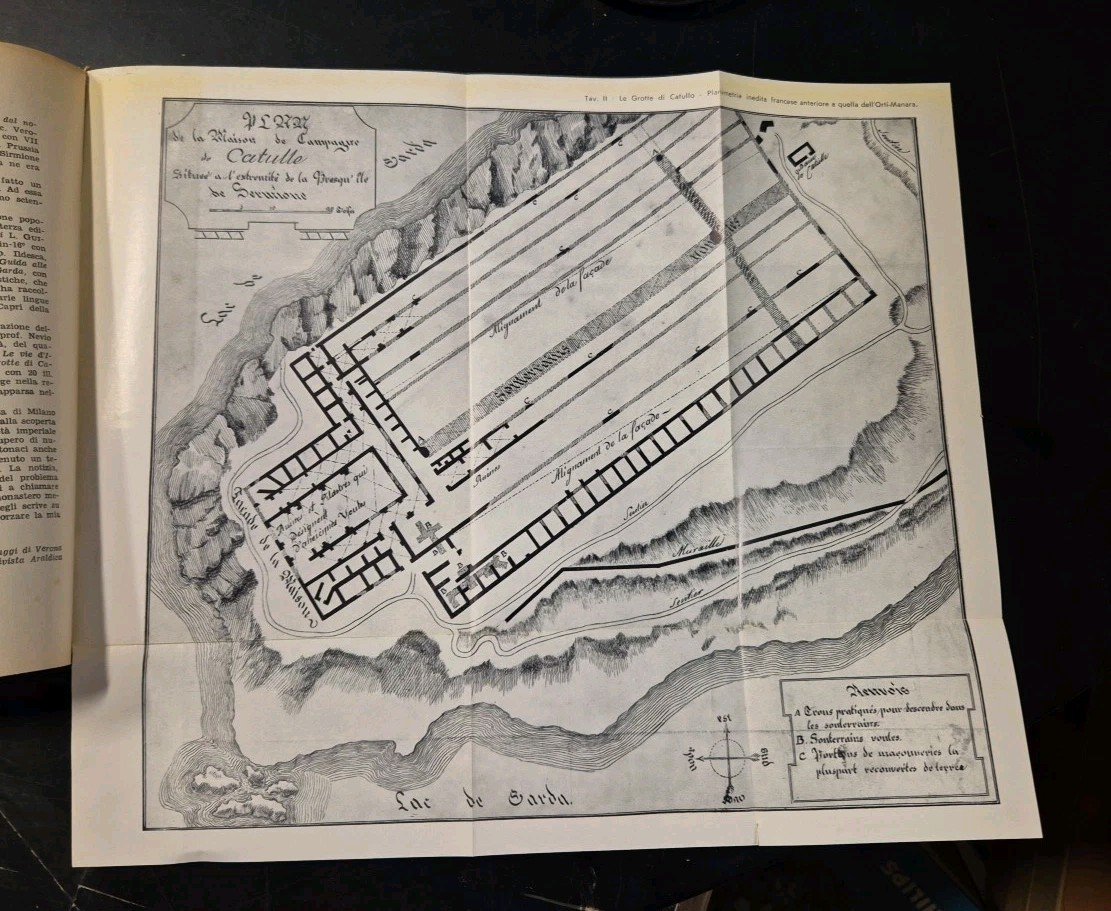 dal no-
e. Vero-
con VII
Prussia
Sirmione
a ne era
fatto un
Ad essa
no scien-
one popo-
terza edi-
i L. GUI-
in-16° con
Guida alle
Garda, con
stiche, che
ha raccol-
arie lingue
Capri della
azione del-
prof. Nevio
à, del qua-
Le vie d'I-
rotte di Ca-
con 20 ill.
ge nella re-
apparsa nel-
a di Milano
alla scoperta
tà imperiale
upero di nu-
tonaci anche
enuto un te-
La notizia,
del problema
i a chiamare
monastero me-
egli scrive su
orzare la mia
aggi di Verona
ivista Araldica
Tav. II - Le Grotte di Catullo - Planimetria inedita francese anteriore a quella dell'Orti-Manara.
PLAN
de la Maison de Campagne
de Catulle
Située a l'extremité de la Presqu'île
de Sermione
Lac de Garda
Sentier
Alignament de la façade
Souterrains
Alignament de la façade
Ruines
Ruines et Pilastres qui
designent
d'anciennes Voutes
Façade de la Maison
Sentier
Muraille
Sentier
Lac de Garda.
est
sud
nord
Renvois
A Trous pratiqués pour descendre dans
les souterrains.
B. Souterrains voutés.
C Portions de maçonneries la
pluspart recouvertes de terre
PS